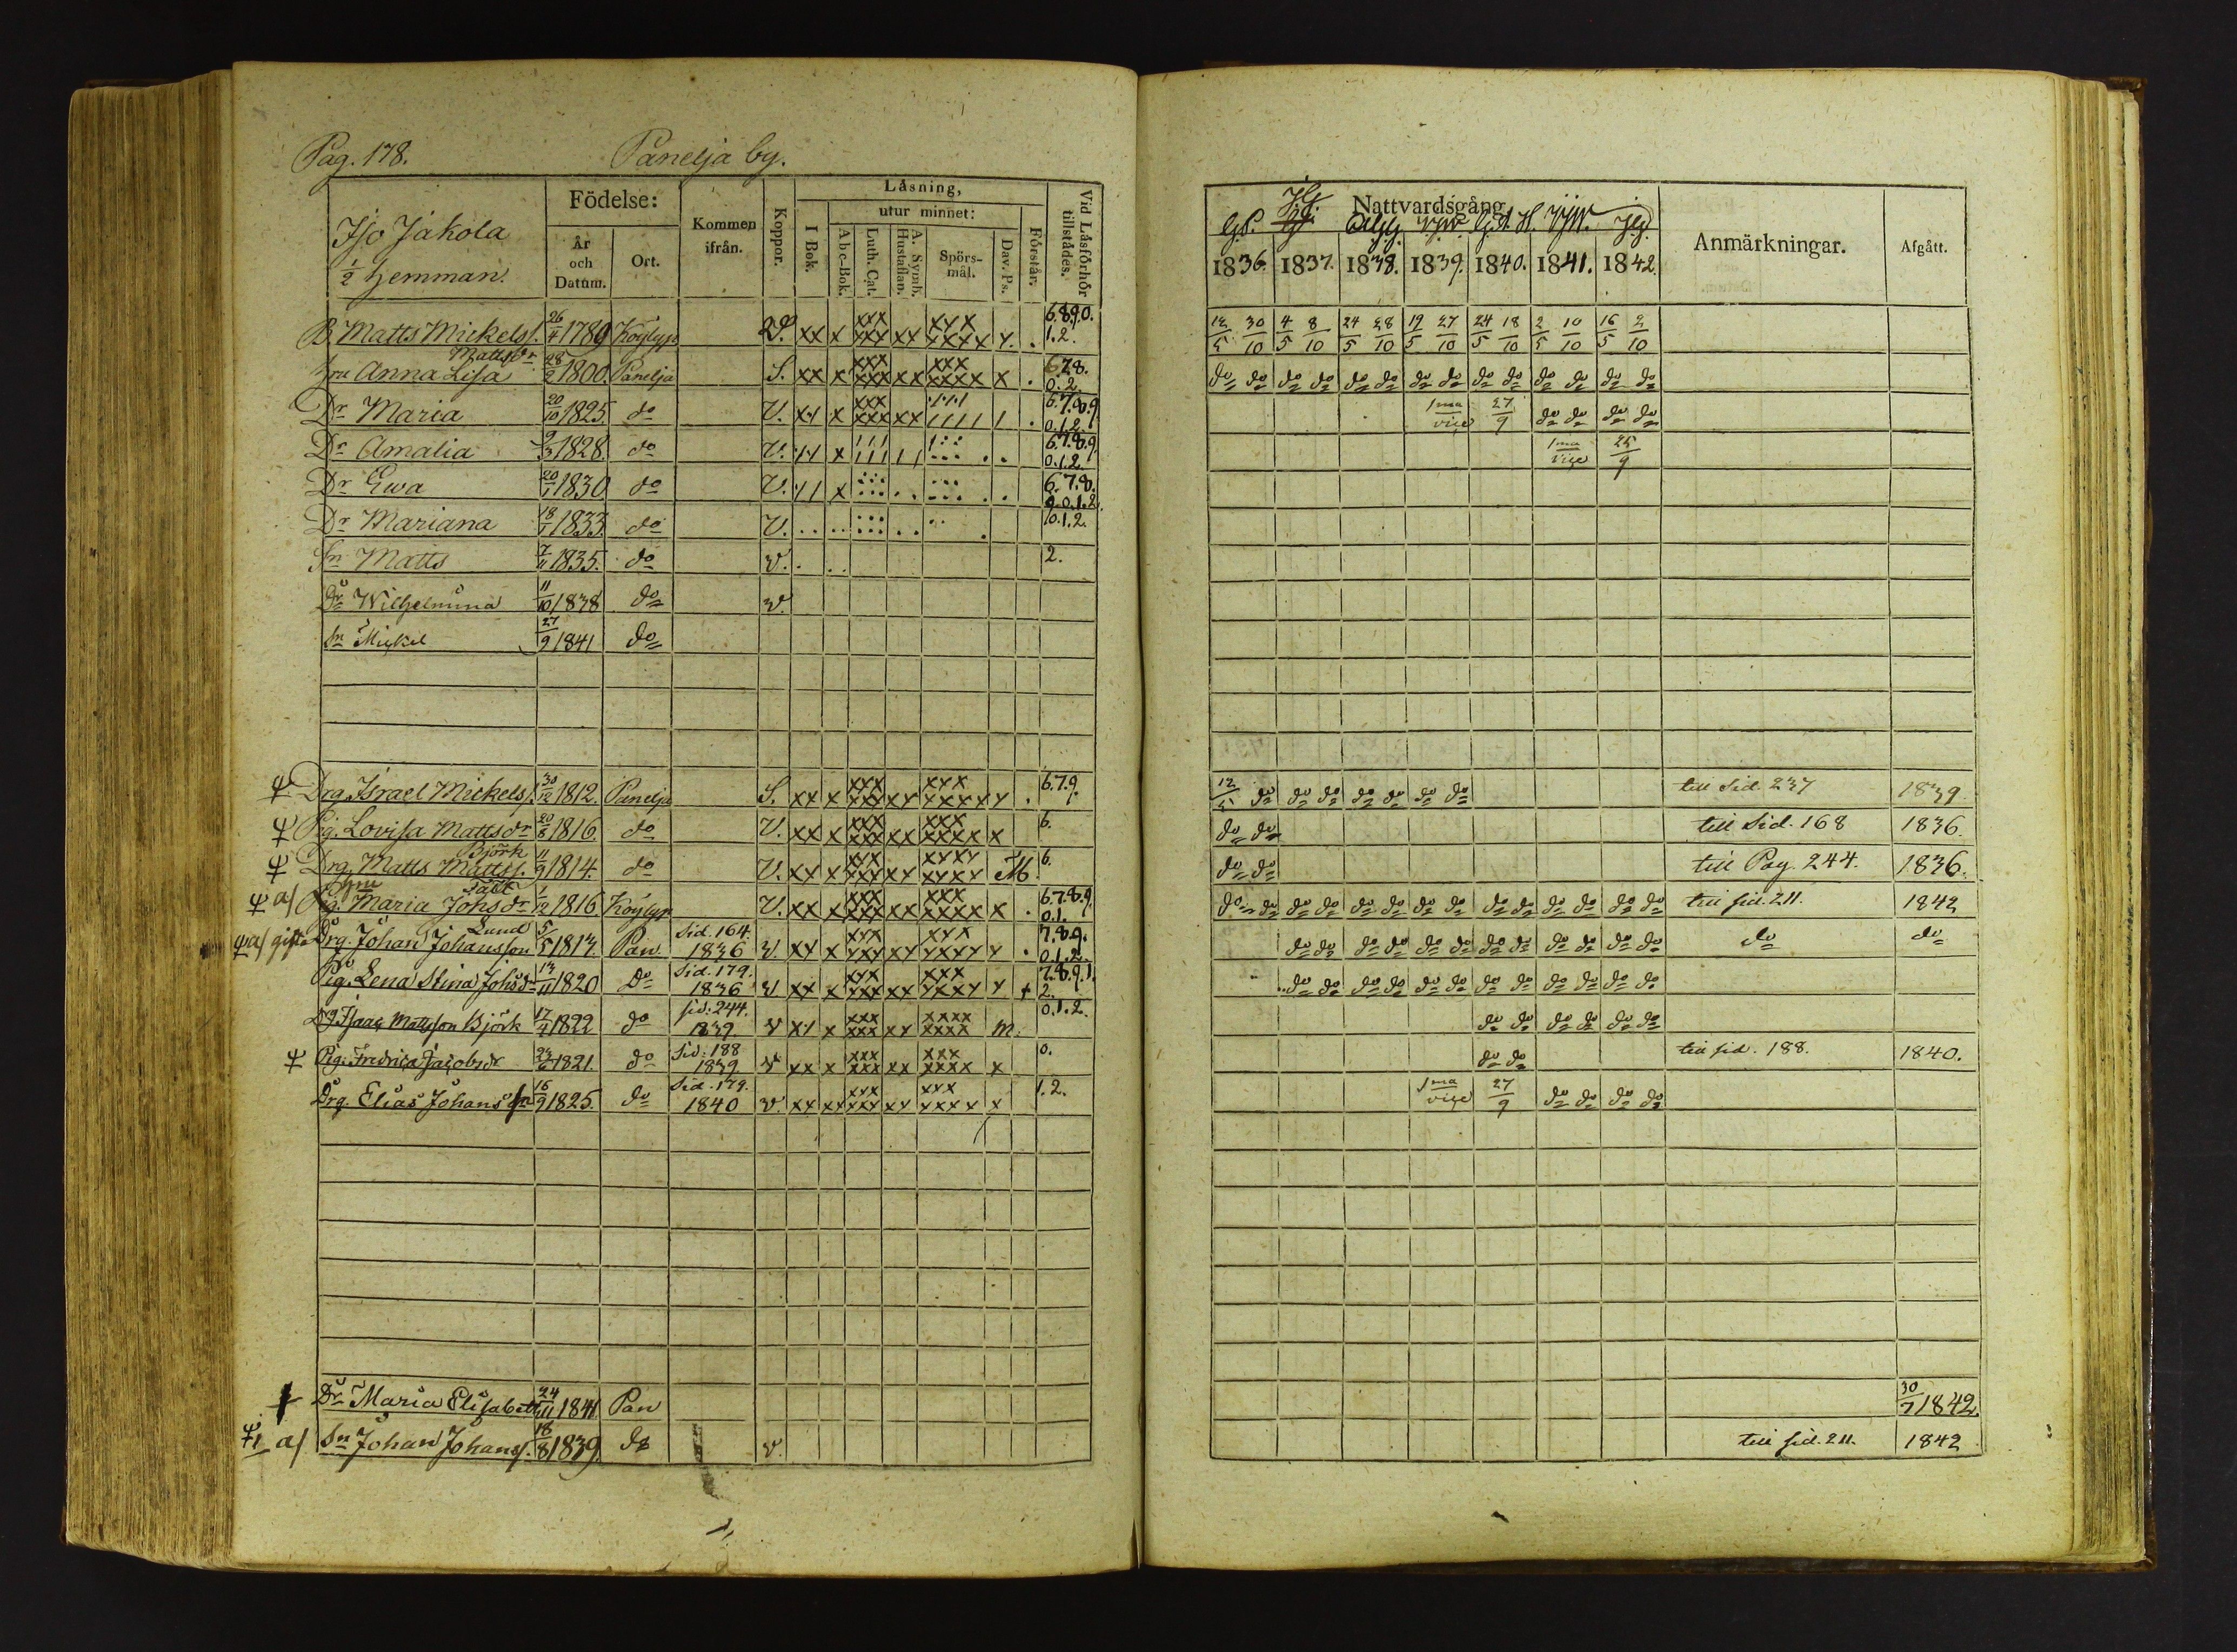 Pag. 178. Panelja by.
Iso Jakola
1/2 hemman.
Födelse:
År och Datum.
Ort.
Kommen ifrån.
Koppor.
Låsning,
I Bok.
utur minnet:
Abc-Bok.
Luth. Cat.
A. Symb. Hustaflan.
Spörs-mål.
Dav. Ps.
Förstår.
Vid Läsförhör tillstädes.
B. Matts Mickelss. 26/4 1789 Köylyp S. xx x xxx xxx xx xxx xxxx x. . 6.8.9.0. 1.2.
Mattsdr
hru Anna Lisa 28/2 1800. Panelja S. xx x xxx xxx xx xxx xxxx x . 6.7.8. 0.2.
Dr Maria 20/10 1825. do V. xx x xxx xxx xx . 6.7.8.9. 0.1.2.
Dr Amalia 9/3 1828. do V. x 6.7.8.9. 0.1.2.
Dr Ewa 20/1 1830 do V. x 6.7.8. 9.0.1.2.
Dr Mariana 18/1 1833. do V. 0.1.2.
Sn Matts 7/11 1835. do v. 2.
Dr Wilhelmina 11/10 1838 do v.
Sn Mickel 27/9 1841 do
Drg. Israel Mickelss. 30/12 1812. Panelja S. xx x xxx xxx xx xxx xxxxx x . 6.7.9.
Pig. Lovisa Mattsdr 20/6 1816. do V. xx x xxx xxx xx xxx xxxxx x 6.
Björk
Drg. Matts Mattss. 11/9 1814. do V. xx x xxx xxx xx xxxx xxxx M. 6.
a/ Pig. Maria Johsdr 1/12 1816. Köylyp V. xx x xxx xxx xx xxx xxxxx x . 6.7.8.9. 0.1.
Lund
a/ gift Drg. Johan Johansson 5/5 1813. Pan. Sid. 164. 1836 v. xx x xxx xxx xx xxx xxxxx x . 7.8.9. 0.1.2.
Pig. Lena Stina Johsdr 13/11 1820 do Sid. 179. 1836 v xx x xxx xxx xx xxx xxxx x x 7.8.9.1. 2.
Drg Isaac Mattsson Björk 17/4 1822 do sid. 244. 1839 v xx x xxx xxx xx xxxx xxxx m. 0.1.2.
Pig. Fredrica Jacobsdr 1821. do Sid. 188 1839 v xx x xxx xxx xx xxx xxxx x 0.
Drg. Elias Johans sn 16/9 1825. do Sid. 179. 1840 v. xx xx xxx xxx xx xxx xxxx x 1.2.
Dr Maria Elisabeth 24/11 1841 Pan
a/ Sn Johan Johanss. 18/8 1839 do v.
Nattvardsgång
1836. 1837. 1838. 1839. 1840. 1841. 1842.
Anmärkningar.
Afgått.
12/5 30/10 4/5 8/10 24/5 28/10 19/5 27/10 24/5 18/10 2/5 10/10 16/5 2/10
do do do do do do do do do do do do do do
1ma vice 27/9 do do do do
1ma vice 25/9
12/5 do do do do do do do till Sid. 237 1839.
do do till Sid. 168 1836.
do do till Pag. 244. 1836.
do do do do do do do do do do do do do do till sid. 211. 1842
do do do do do do do do do do do do do do
do do do do do do do do do do do do
do do do do do do
do do till sid. 188. 1840.
1ma vice 27/9 do do do do
30/7 1842.
till sid. 211. 1842